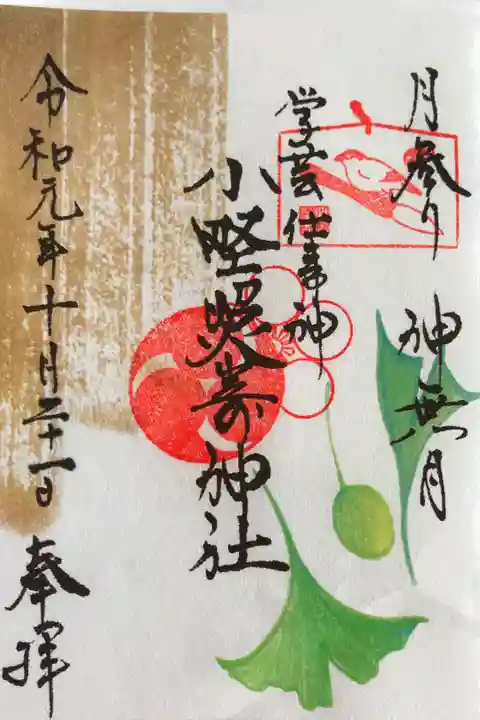 月参り 神無月
学芸仕事神
小野照嵜神社
令和元年十月二十一日
奉拝